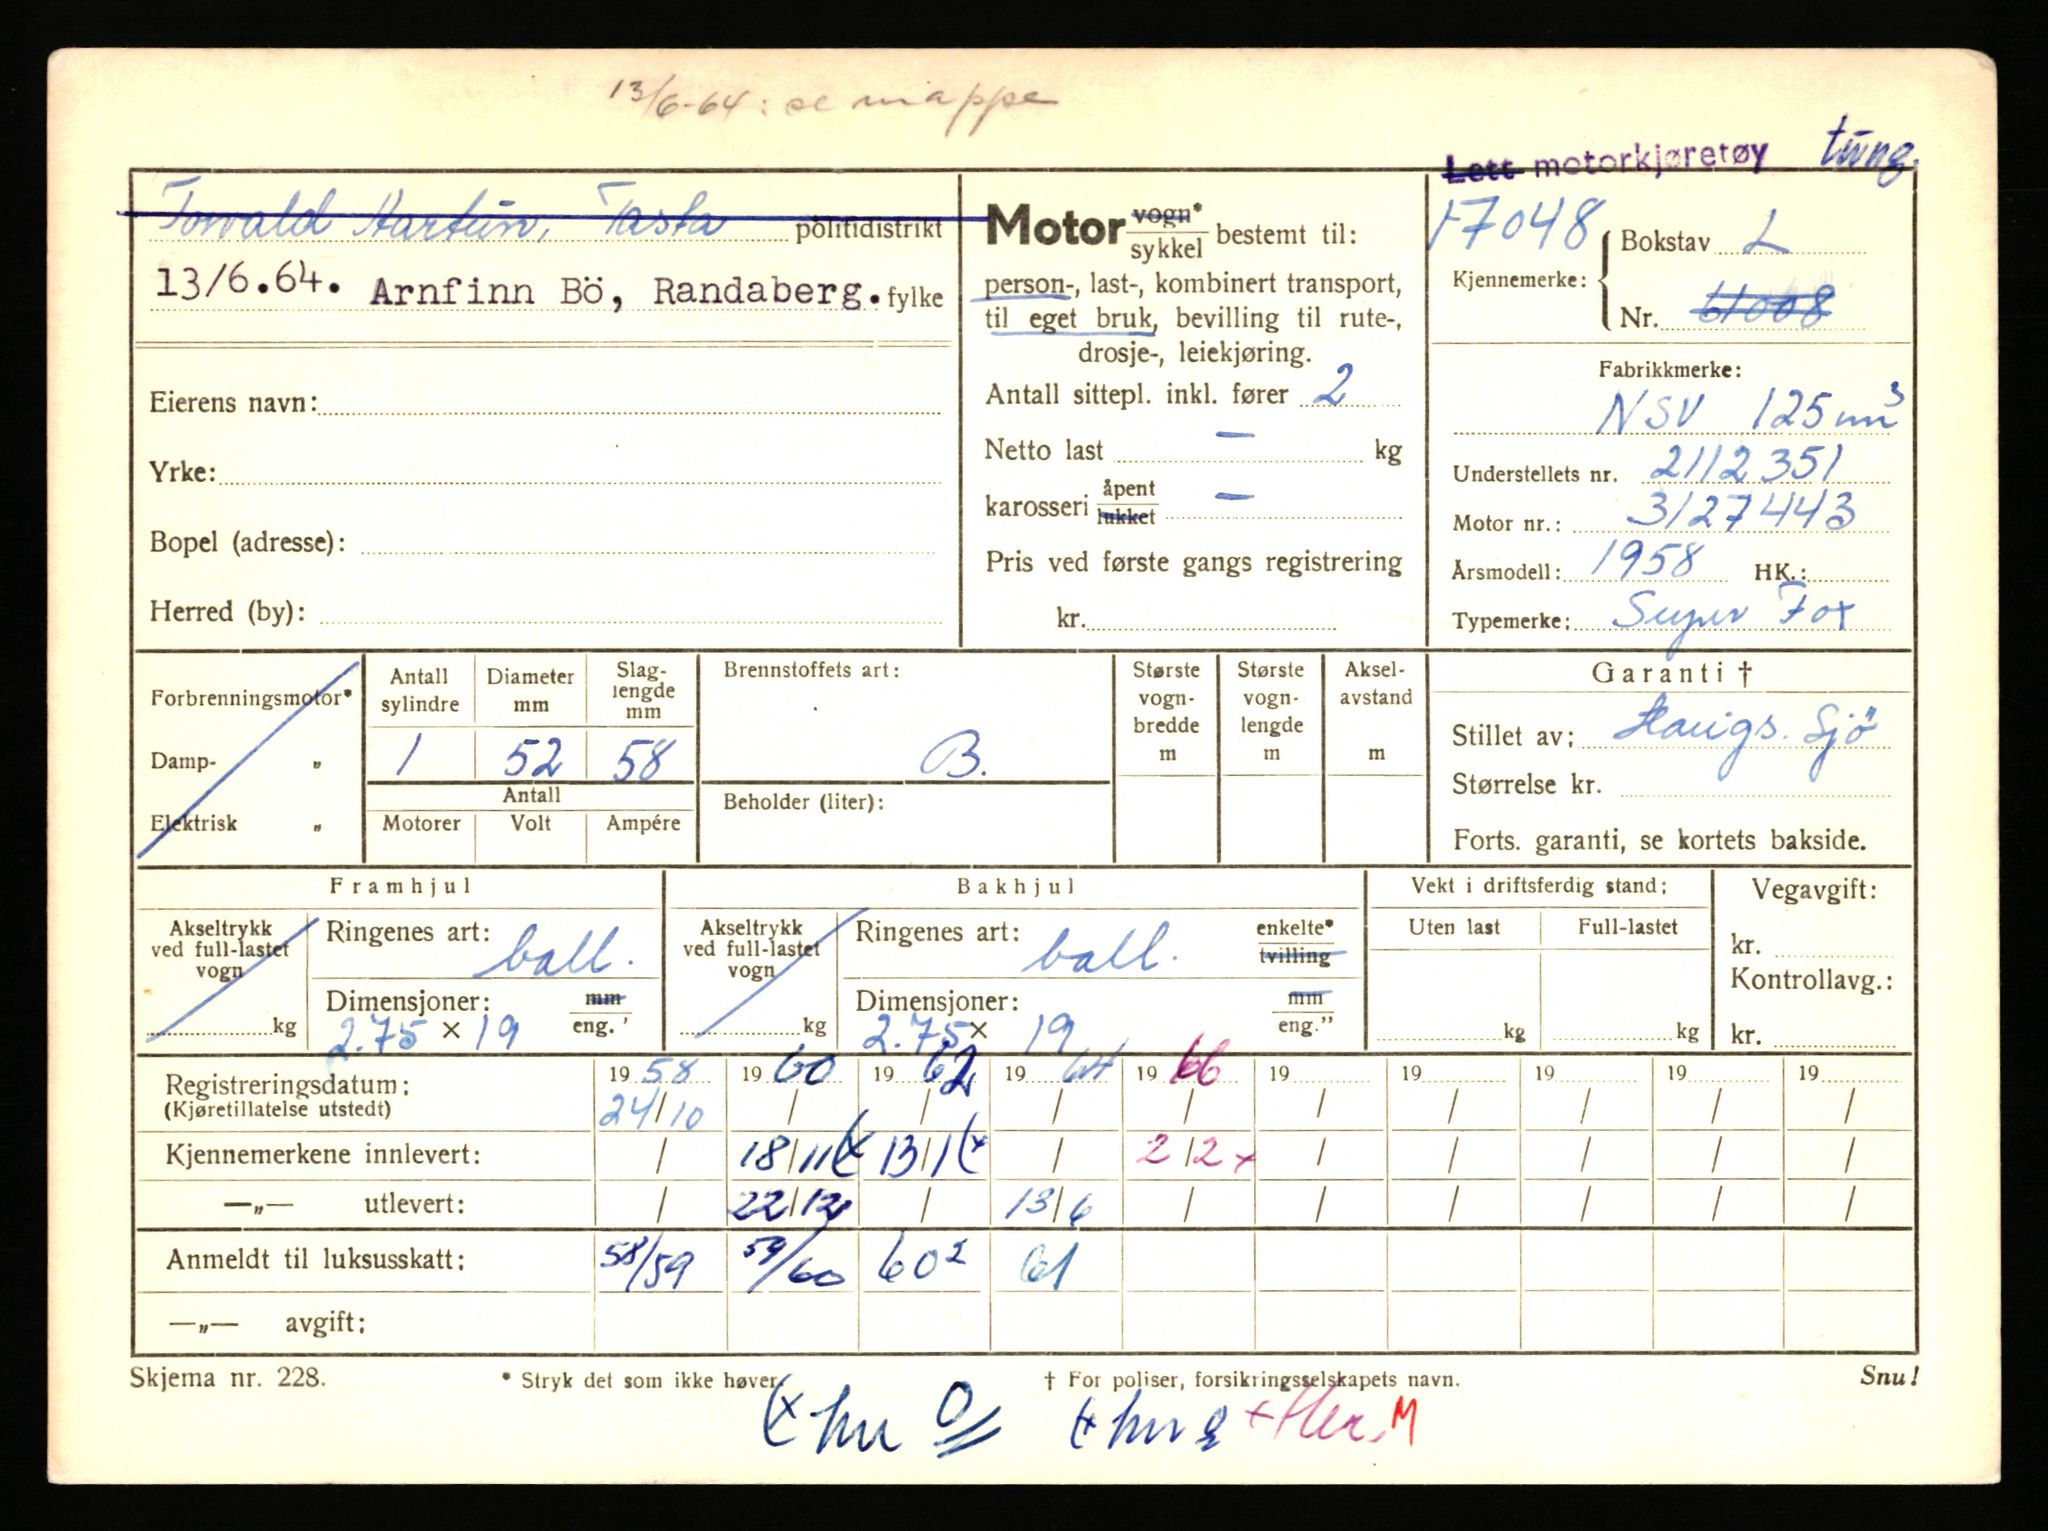 13/6-64: se mappe
Lett motorkjøretøy tung.
Torvald Hartun, Tasta politidistrikt
13/6.64. Arnfinn Bö, Randaberg. fylke
Eierens navn:
Yrke:
Bopel (adresse):
Herred (by):
Motor vogn* / sykkel bestemt til:
person-, last-, kombinert transport,
til eget bruk, bevilling til rute-,
drosje-, leiekjøring.
Antall sittepl. inkl. fører 2
Netto last — kg
karosseri åpent / lukket —
Pris ved første gangs registrering
kr.
17048
Kjennemerke: Bokstav L
Nr. 61008
Fabrikkmerke:
NSV 125 cm³
Understellets nr. 2112351
Motor nr.: 3127443
Årsmodell: 1958 HK.:
Typemerke: Super Fox
Forbrenningsmotor*
Damp- „
Elektrisk „
Antall sylindre Diameter mm Slag-lengde mm
1 52 58
Antall
Motorer Volt Ampére
Brennstoffets art:
B.
Beholder (liter):
Største vogn-bredde m
Største vogn-lengde m
Aksel-avstand m
Garanti †
Stillet av: Haugs. Sjö
Størrelse kr.
Forts. garanti, se kortets bakside.
Framhjul
Akseltrykk ved full-lastet vogn kg
Ringenes art: ball.
Dimensjoner: mm / eng. '
2.75 × 19
Bakhjul
Akseltrykk ved full-lastet vogn kg
Ringenes art: ball. enkelte* / tvilling
Dimensjoner: mm / eng."
2.75 × 19
Vekt i driftsferdig stand:
Uten last Full-lastet
kg kg
Vegavgift:
kr.
Kontrollavg.:
kr.
Registreringsdatum: 19 58 19 60 19 62 19 64 19 66 19 19 19 19 19
(Kjøretillatelse utstedt) 24/10 / / / / / / / / /
Kjennemerkene innlevert: / 18/11 (x 13/1 (x / 2/2 x / / / / /
—„— utlevert: / 22/12 / 13/6 / / / / / /
Anmeldt til luksusskatt: 58/59 59/60 60² 61
—„— avgift:
Skjema nr. 228. * Stryk det som ikke høver. † For poliser, forsikringsselskapets navn. Snu!
(x hu (x her M